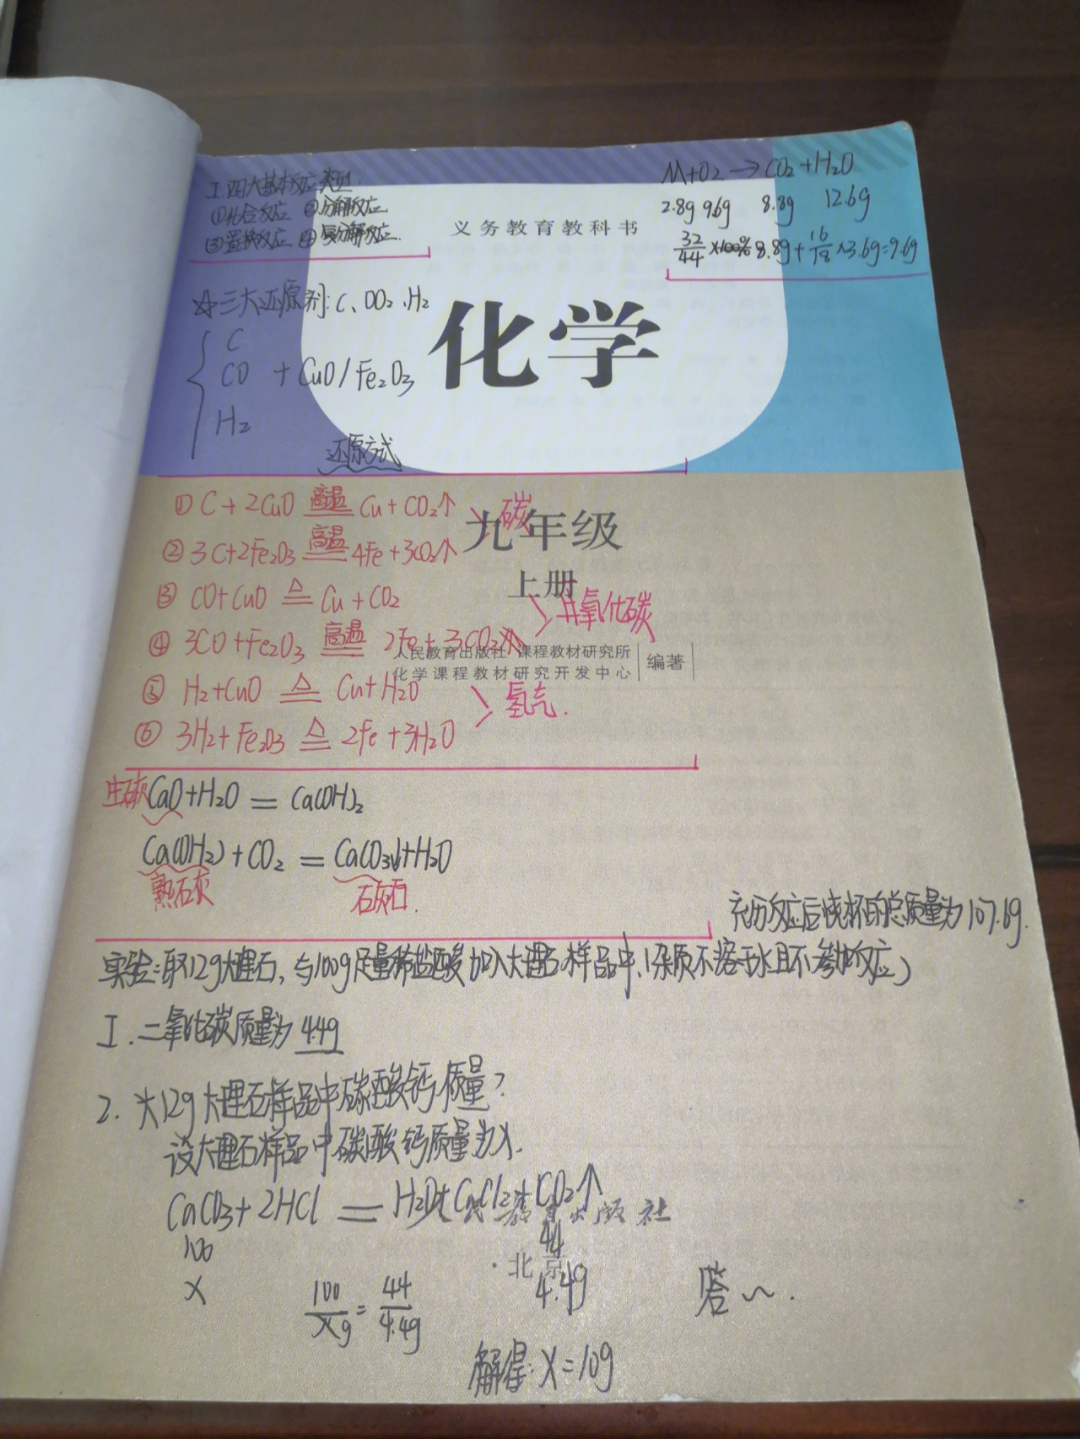 I.四大基本反应类型
①化合反应 ②分解反应
③置换反应 ④复分解反应.
M+O2→CO2+H2O
2.8g 9.6g 8.8g 12.6g
32/44×100%8.8g+16/18×3.6g=9.6g
义务教育教科书
☆三大还原剂:C、CO2、H2
化学
C
CO + CuO/Fe2O3
H2
还原方式
①C+2CuO 高温 Cu+CO2↑
碳
②3C+2Fe2O3 高温 4Fe+3CO2↑
九年级
上册
③CO+CuO △ Cu+CO2
一氧化碳
④3CO+Fe2O3 高温 2Fe+3CO2
人民教育出版社 课程教材研究所
化学课程教材研究开发中心
编著
⑤H2+CuO △ Cu+H2O
氢气.
⑥3H2+Fe2O3 △ 2Fe+3H2O
生石灰 CaO+H2O=Ca(OH)2
Ca(OH2)+CO2=CaCO3↓+H2O
熟石灰 石灰石.
充分反应后烧杯的总质量为107.6g.
实验:取12g大理石,与100g足量稀盐酸加入大理石样品中,(杂质不溶于水且不参加反应)
I.二氧化碳质量为4.4g
2.求12g大理石样品中碳酸钙质量?
设大理石样品中碳酸钙质量为X.
CaCO3+2HCl=H2O+CaCl2+CO2↑
人民教育出版社
100 44
·北京·
X 4.4g
100/Xg=44/4.4g
答~.
解得:X=10g